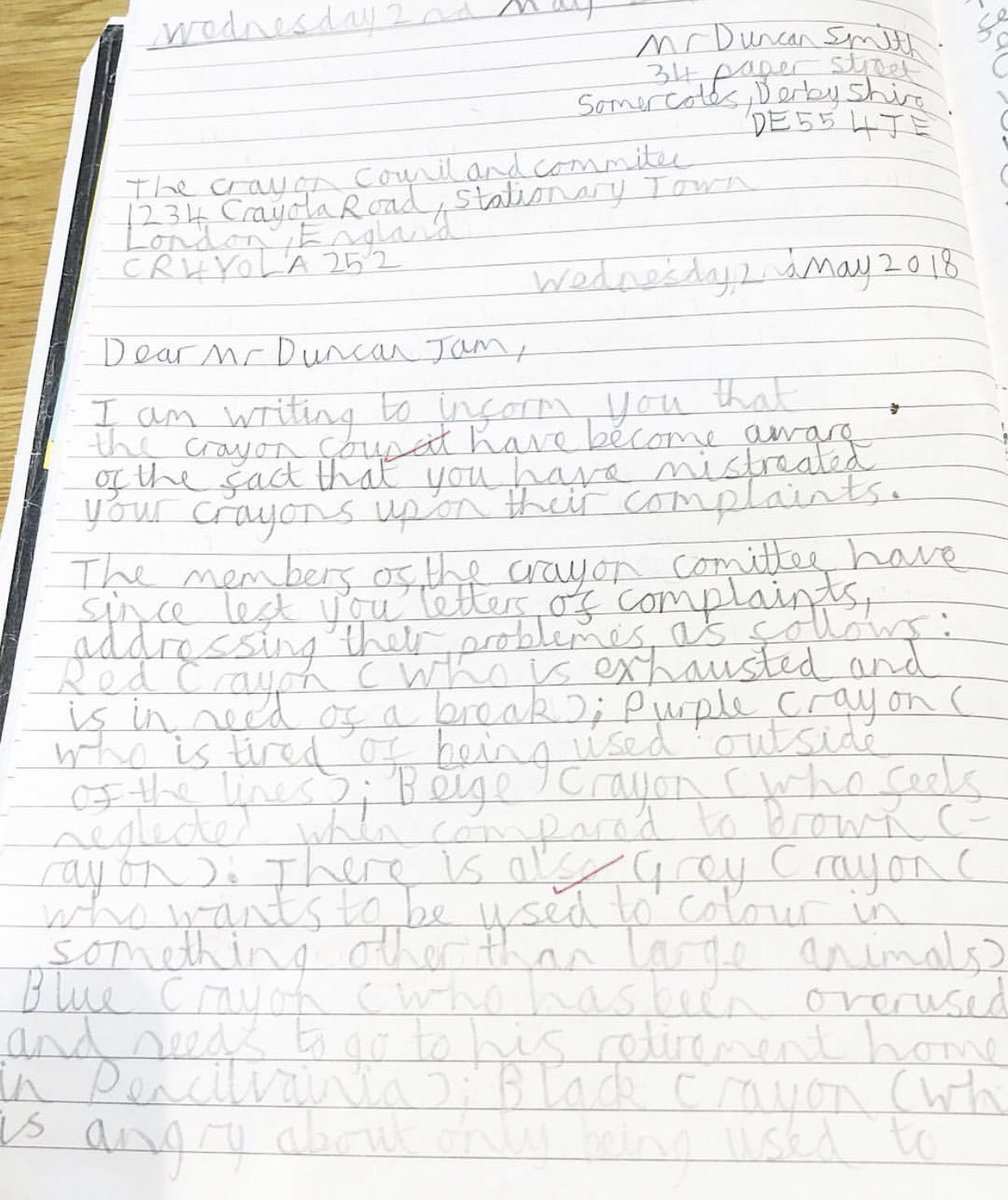 Wednesday 2nd May
Mr Duncan Smith
34 paper street
Somercotes, Derbyshire
DE55 4JE
The crayon Counil and commitee
1234 Crayola Road, Stationary Town
London, England
CR4YOLA 252
Wednesday, 2nd May 2018
Dear Mr Duncan Jam,
I am writing to inform you that
the crayon council have become aware
of the fact that you have mistreated
your crayons upon their complaints.
The members of the crayon comittee have
since left you letters of complaints,
addressing their problemes as follows:
Red Crayon (who is exhausted and
is in need of a break); Purple Crayon (
who is tired of being used outside
of the lines); Beige Crayon (who feels
neglected when compared to brown C-
rayon). There is also Grey Crayon (
who wants to be used to colour in
something other than large animals)
Blue Crayon (who has been overused
and needs to go to his retirement home
in Pencilvainia); Black Crayon (wh
is angry about only being used to